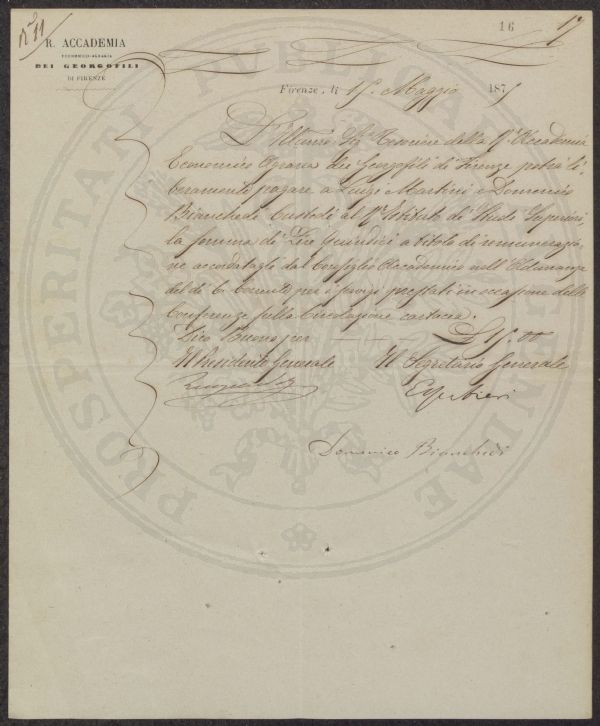 N° 11
16
17
R. ACCADEMIA
ECONOMICO-AGRARIA
DEI GEORGOFILI
DI FIRENZE
Firenze, li 15 Maggio 1875
L'Illmo Sigr Tesoriere della Rl Accademia
Economico Agraria dei Georgofili di Firenze potrà li-
beramente pagare a Luigi Martini e Domenico
Bianchedi Custodi al Rl Istituto di Studi Superiori,
la somma di Lire Quindici a titolo di remunerazio-
ne accordatagli dal Consiglio Accademico nell'Adunanza
del dì 6 Corrente per i servizi prestati in occasione delle
Conferenze sulla Circolazione cartacea.
Dico Buono per £ 15.00
Il Presidente Generale Il Segretario Generale
Domenico Bianchedi
PROSPERITATI PUBLICAE AUGENDAE